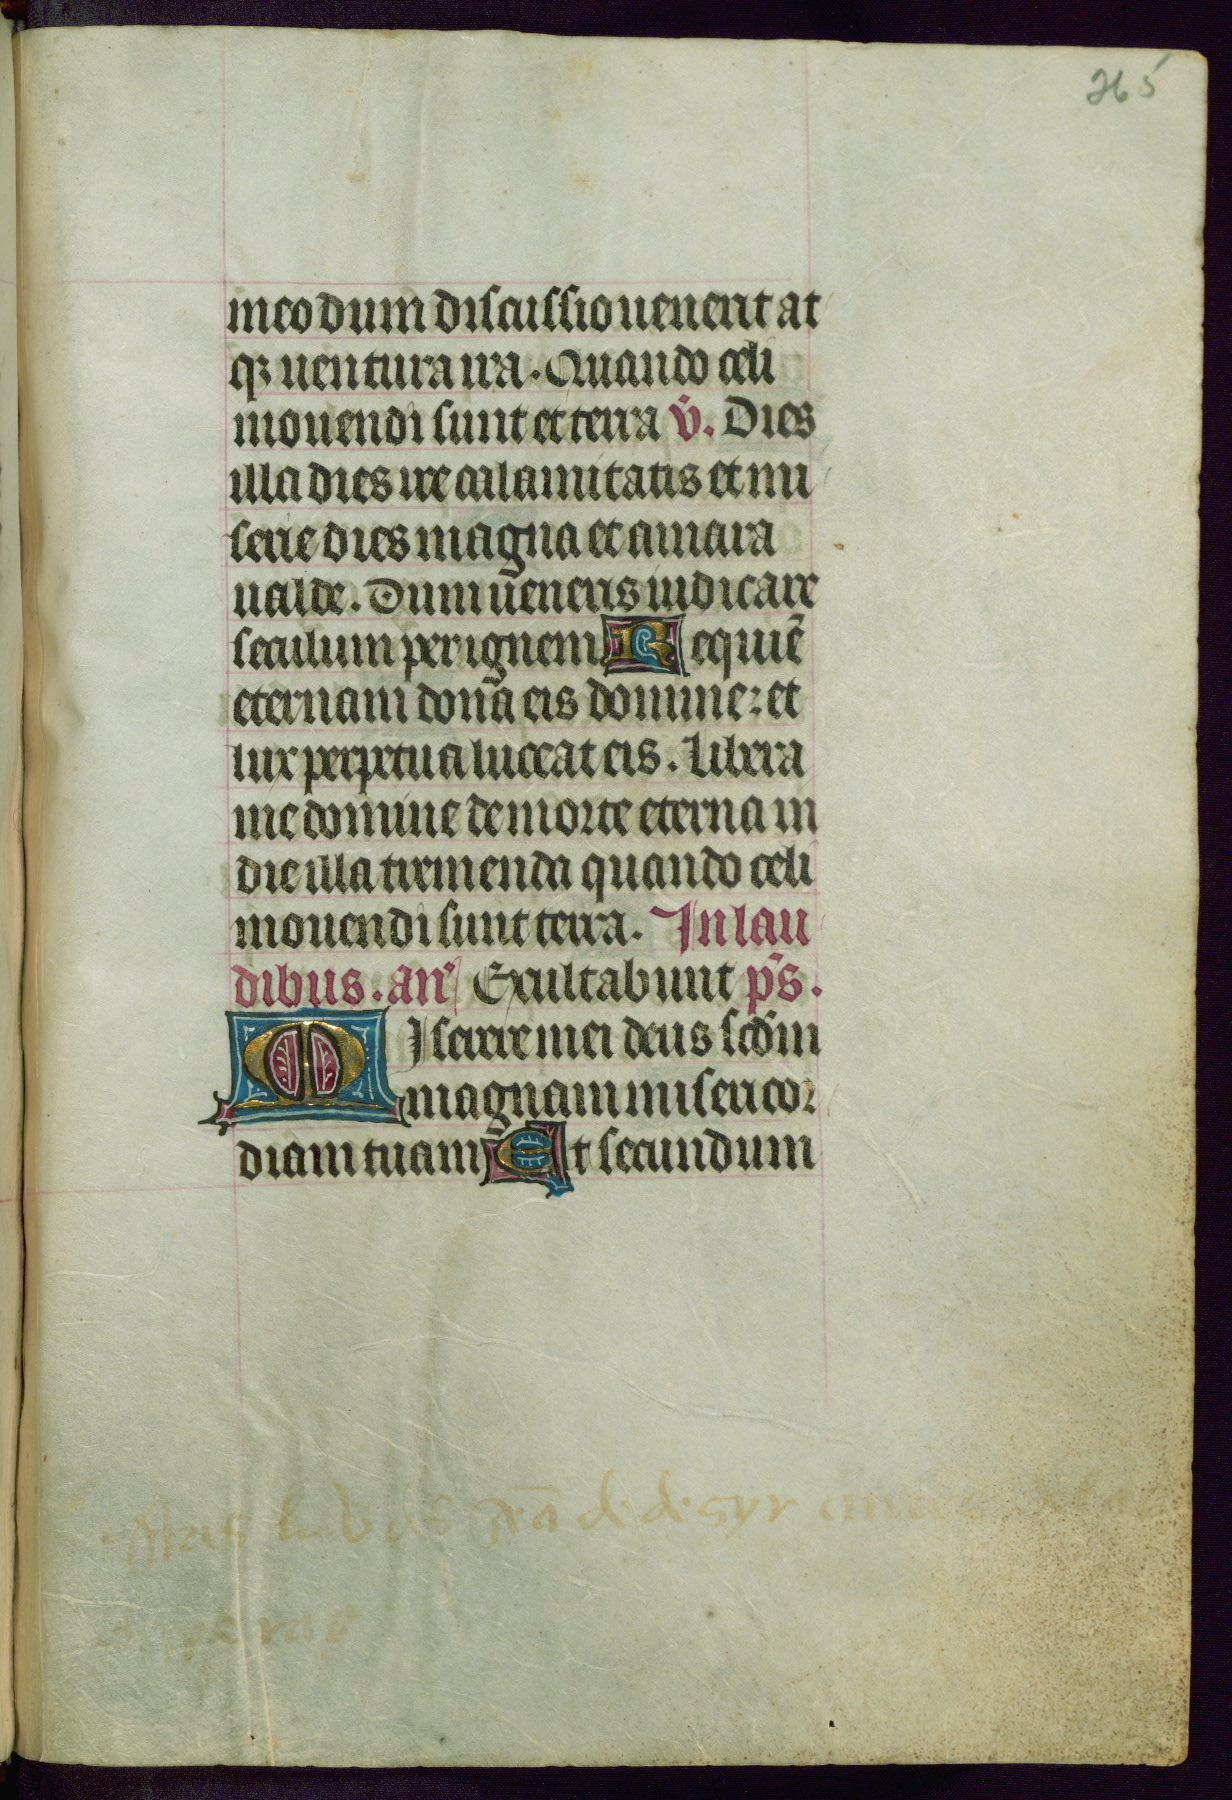 265
meo dum discussio uenerit at
qꝫ uentura ira. Quando celi
mouendi sunt et terra v̇. Dies
illa dies ire calamitatis et mi
serie dies magna et amara
ualde. Dum ueneris iudicare
seculum per ignem Requiē
eternam dona eis domine: et
lux perpetua luceat eis. Libera
me domine de morte eterna in
die illa tremenda quando celi
mouendi sunt terra. In lau
dibus. añ Exultabunt p̄s.
Miserere mei deus scd̄m
magnam misericor
diam tuam Et secundum